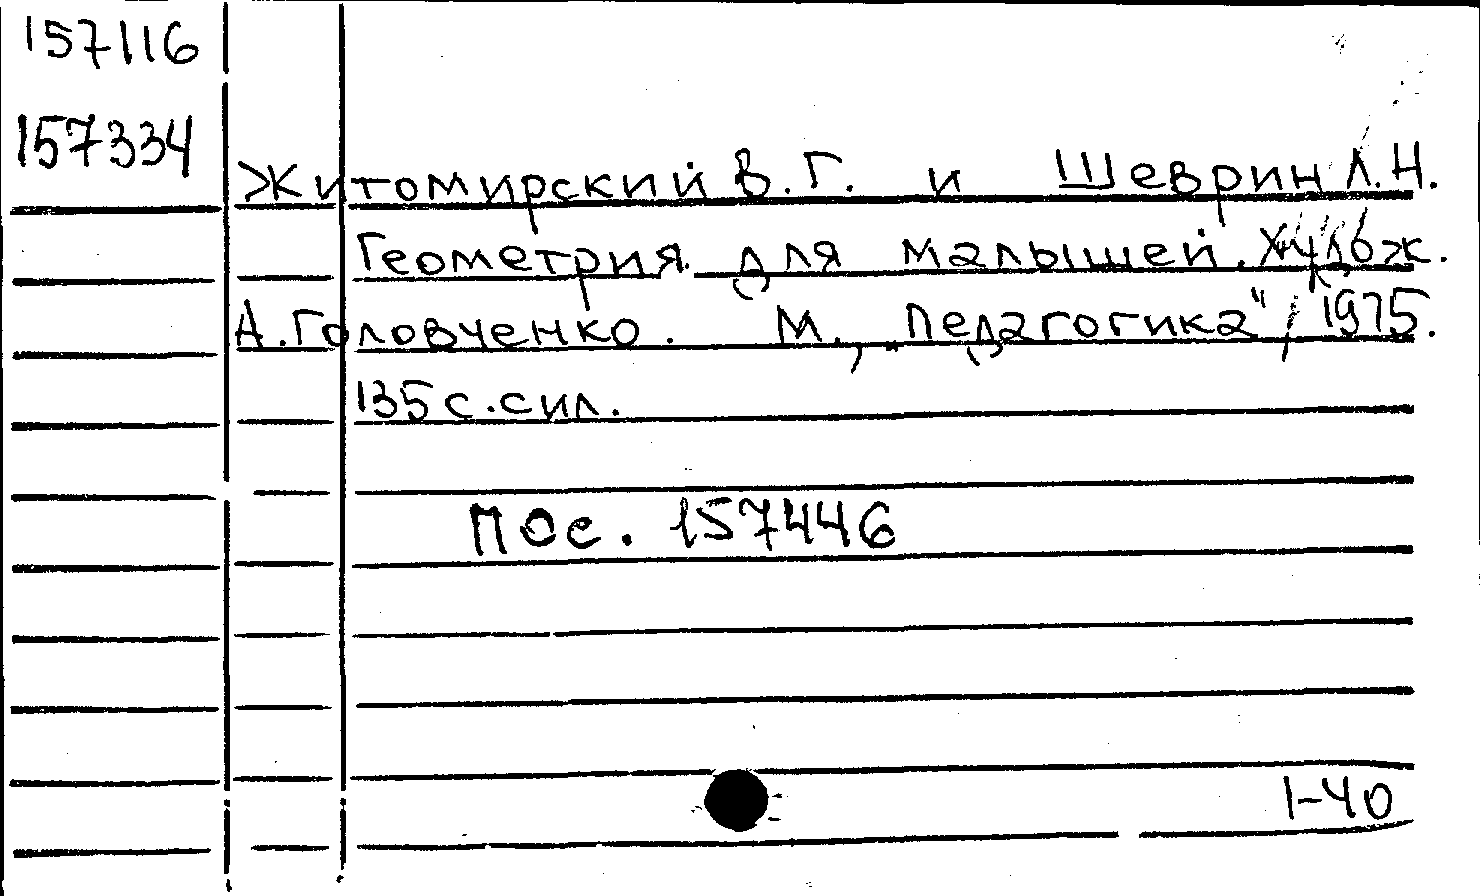 157116
157334
Житомирский В.Г. и Шеврин Л.Н.
Геометрия для малышей. Худож.
А.Головченко. М., „Педагогика", 1975.
135 с. с ил.
Пос. 157446
1-40